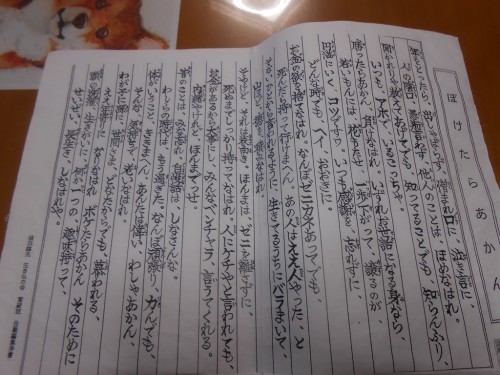 ぼけたらあかん
年をとったら、出しゃばらず、憎まれ口に、泣き言に、
人の陰口、愚痴言わず、他人のことは、ほめなはれ。
聞かれりゃ教えてあげても、知ってることでも、知らんふり、
いつも、アホで、いるこっちゃ。
勝ったらあかん、負けなはれ。いずれお世話になる身なら、
若いもんには花もたせ、一歩さがって、譲るのが、
円満にいく、コツですワ。いつも感謝を忘れずに、
どんな時でも、ヘイ、おおきに。
お金の欲を捨てなはれ。なんぼゼニカネあってでも、
死んだら持って行けまへん。あの人はええ人やった、と
そないに人から言われるように、生きてるうちにバラまいて、
山ほど、徳を積みなはれ。
そやけど、それは表向き。ほんまは、ゼニを離さずに、
死ぬまでしっかり持ってなはれ。人にケチやと言われても、
お金があるから大事にし、みんなベンチャラ、言うてくれる。
内緒やけんど、ほんまだっせ。
昔のことは、みな忘れ、自慢話は、しなさんな。
わしらの時代は、もう過ぎた。なんぼ頑張り、力んでも、
体がいうこと、ききまへん。あんたは偉い、わしゃあかん、
そんな、気持ちで、おりなはれ。
わが子に孫に、世間さま、どなたからでも、慕われる、
ええ年寄りに、なりなはれ。ボケたらあかん、そのために
頭の洗濯、生きがいに、何か一つの、趣味持って、
せいぜい、長生き、しなはれや。